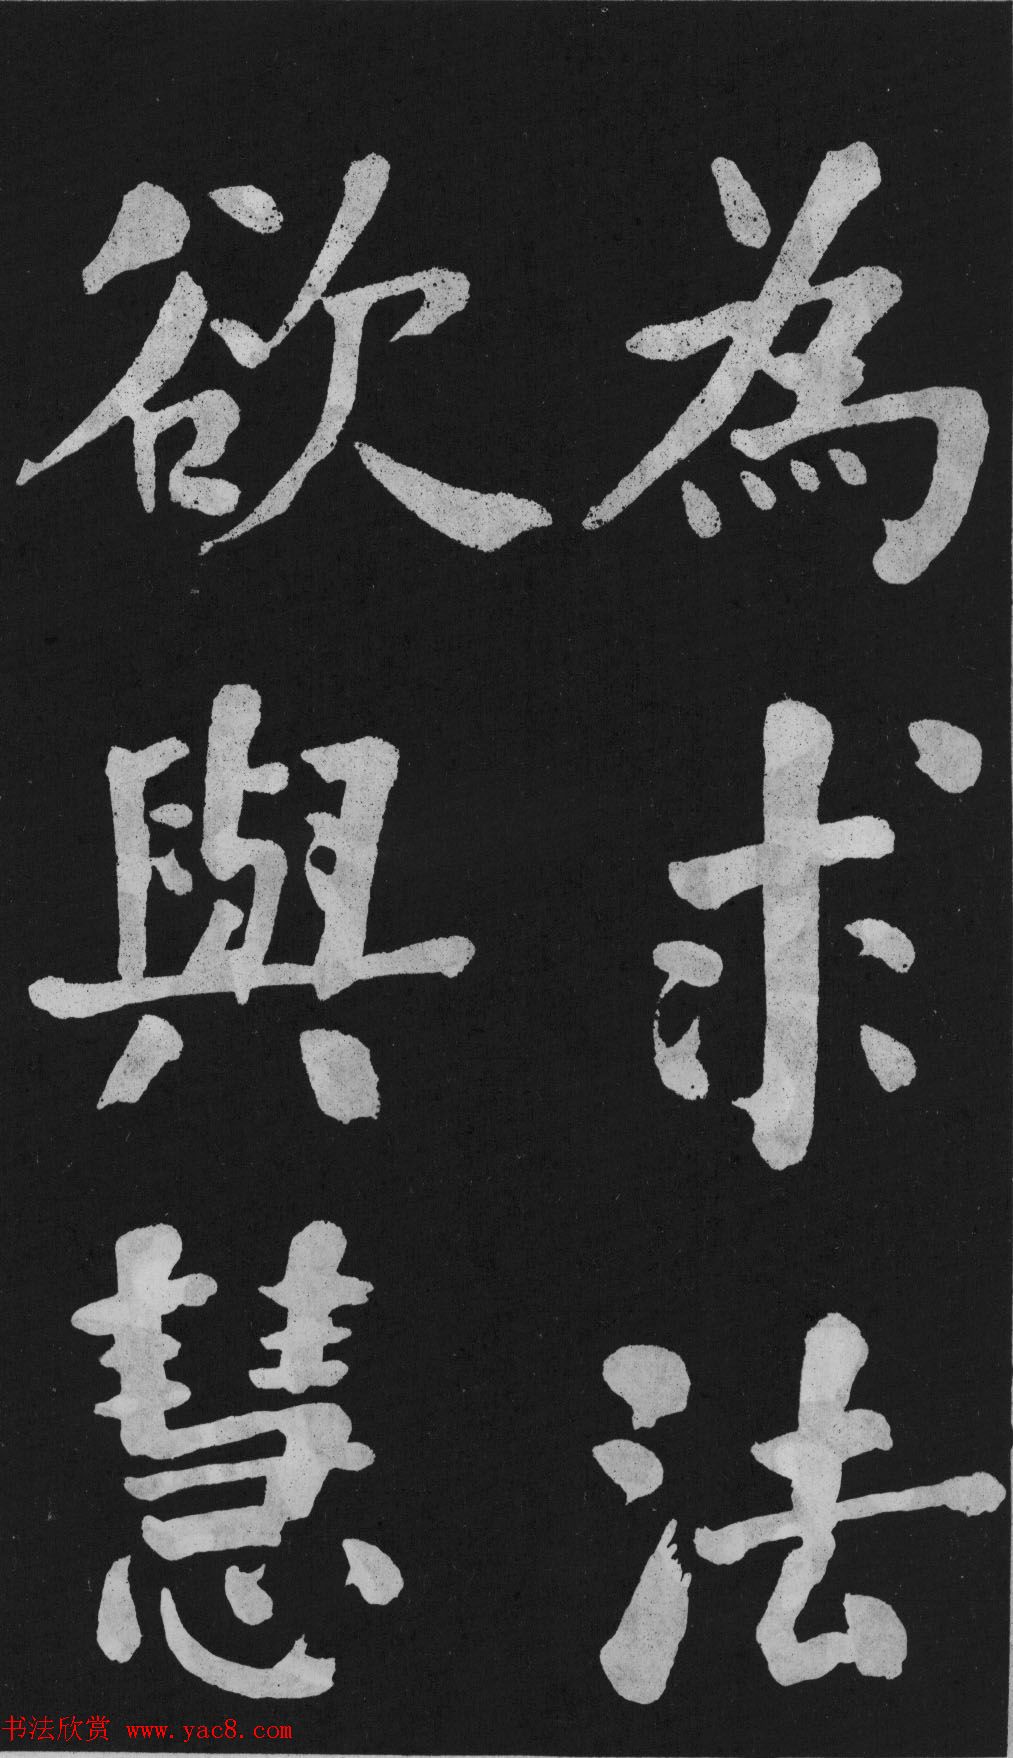 為求法
欲與慧
书法欣赏 www.yac8.com